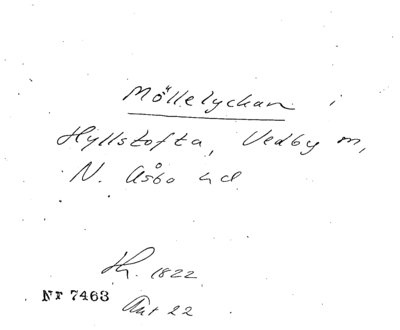 Möllelyckan i
Hyllstofta, Vedby m,
N. Åsbo hd
Th. 1822
Nr 7463
Akt 22